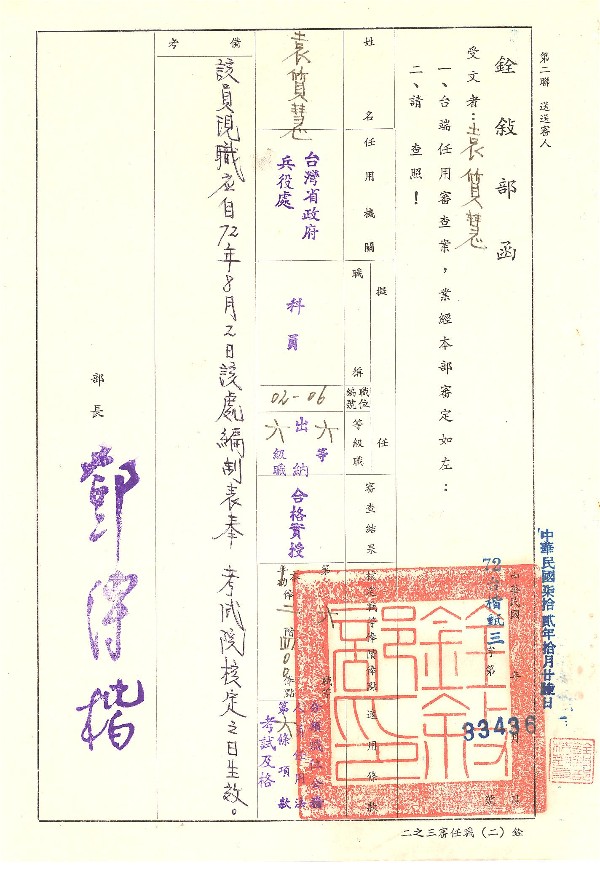 第二聯 送送審人
銓敍部函
受文者：袁質慧
一、台端任用審查案，業經本部審定如左：
二、請 查照！
中華民國柒拾貳年拾月廿陸日
72台楷甄三
字第
33436
號
姓名
任用機關
擬任
職稱
職位編號
等級職
審查結果
適用條款
袁質慧
台灣省政府
兵役處
科員
02-06
六等
出納
六級職
合格實授
第六條 項 款
考試及格
備考
該員現職應自72年8月2日該處編制表奉 考試院核定之日生效。
部長
鄧傳楷
銓（二）甄任審三之二